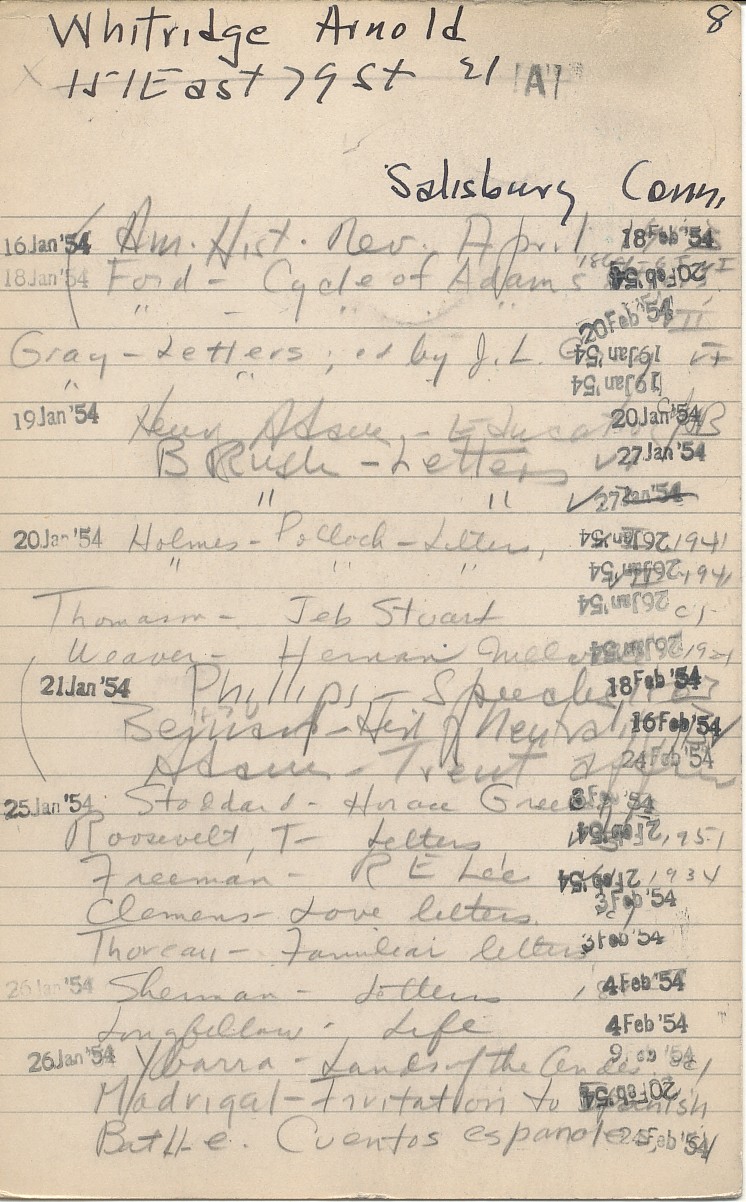 8
Whitridge Arnold
X 151 East 79 St 21 'A'
Salisbury Conn.
16 Jan '54 Am. Hist. Rev. April 18 Feb '54
18 Jan '54 Ford - Cycle of Adams 20 Feb '54
" - " " 20 Feb '54 II
Gray - Letters; ed by J. L. 19 Jan '54
" " 19 Jan '54
19 Jan '54 Henry Adams - Education 20 Jan '54
B Rush - Letters 27 Jan '54
" " 27 Jan '54
20 Jan '54 Holmes - Pollock - Letters, 26 Jan '54 1941
" " " 26 Jan '54 1941
Thomason - Jeb Stuart 26 Jan '54
Weaver - Herman 26 Jan '54 1921
21 Jan '54 Phillips - Speeches 18 Feb '54
Hist of Neutrality 16 Feb '54
Adams - Trent affair 24 Feb '54
25 Jan '54 Stoddard - Horace Greeley 3 Feb '54
Roosevelt, T - Letters 2 Feb '54 1951
Freeman - R E Lee 2 Feb '54 1934
Clemens - Love letters 3 Feb '54
Thoreau - Familiar letters 3 Feb '54
26 Jan '54 Sherman - Letters 4 Feb '54
Longfellow - Life 4 Feb '54
26 Jan '54 Ybarra - Lands of the Andes 9 Feb '54
Madrigal - Invitation to Spanish 20 Feb '54
Cuentos espanoles Feb '54